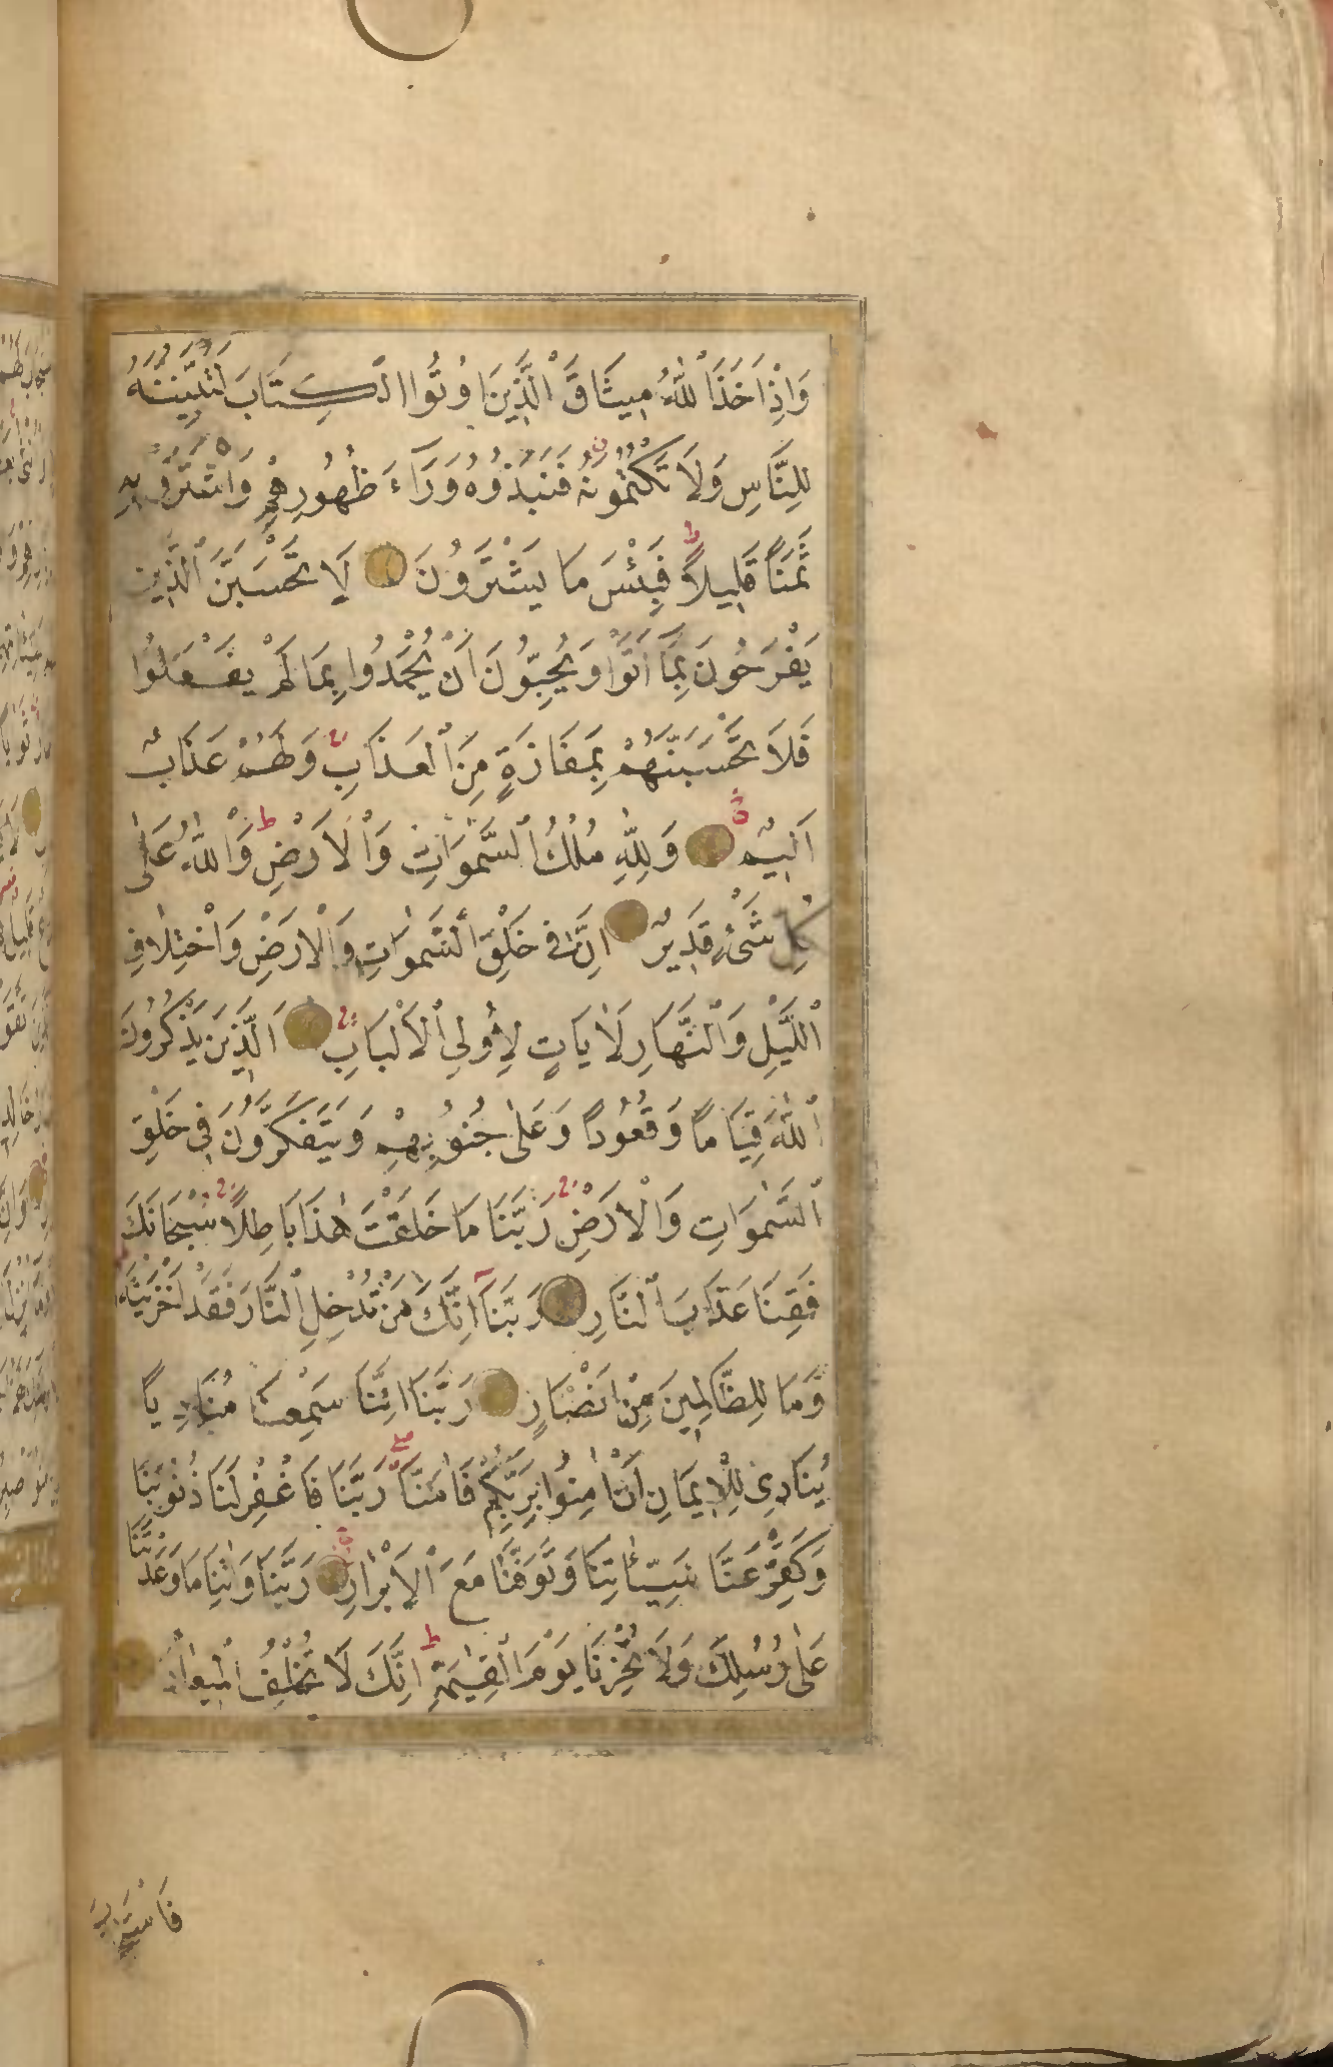 وَاِذْ اَخَذَ اللّٰهُ مِيثَاقَ الَّذِينَ اُوتُوا الْكِتَابَ لَتُبَيِّنُنَّهُ
لِلنَّاسِ وَلَا تَكْتُمُونَهُ فَنَبَذُوهُ وَرَاءَ ظُهُورِهِمْ وَاشْتَرَوْا بِهِ
ثَمَنًا قَلِيلًا فَبِئْسَ مَا يَشْتَرُونَ لَا تَحْسَبَنَّ الَّذِينَ
يَفْرَحُونَ بِمَا اَتَوْا وَيُحِبُّونَ اَنْ يُحْمَدُوا بِمَا لَمْ يَفْعَلُوا
فَلَا تَحْسَبَنَّهُمْ بِمَفَازَةٍ مِنَ الْعَذَابِ وَلَهُمْ عَذَابٌ
اَلِيمٌ وَلِلّٰهِ مُلْكُ السَّمٰوَاتِ وَالْاَرْضِ وَاللّٰهُ عَلٰى
كُلِّ شَىْءٍ قَدِيرٌ اِنَّ فِى خَلْقِ السَّمٰوَاتِ وَالْاَرْضِ وَاخْتِلَافِ
اللَّيْلِ وَالنَّهَارِ لَاٰيَاتٍ لِاُولِى الْاَلْبَابِ اَلَّذِينَ يَذْكُرُونَ
اللّٰهَ قِيَامًا وَقُعُودًا وَعَلٰى جُنُوبِهِمْ وَيَتَفَكَّرُونَ فِى خَلْقِ
السَّمٰوَاتِ وَالْاَرْضِ رَبَّنَا مَا خَلَقْتَ هٰذَا بَاطِلًا سُبْحَانَكَ
فَقِنَا عَذَابَ النَّارِ رَبَّنَا اِنَّكَ مَنْ تُدْخِلِ النَّارَ فَقَدْ اَخْزَيْتَهُ
وَمَا لِلظَّالِمِينَ مِنْ اَنْصَارٍ رَبَّنَا اِنَّنَا سَمِعْنَا مُنَادِيًا
يُنَادِى لِلْاِيمَانِ اَنْ اٰمِنُوا بِرَبِّكُمْ فَاٰمَنَّا رَبَّنَا فَاغْفِرْ لَنَا ذُنُوبَنَا
وَكَفِّرْ عَنَّا سَيِّـَٔاتِنَا وَتَوَفَّنَا مَعَ الْاَبْرَارِ رَبَّنَا وَاٰتِنَا مَا وَعَدْتَنَا
عَلٰى رُسُلِكَ وَلَا تُخْزِنَا يَوْمَ الْقِيٰمَةِ اِنَّكَ لَا تُخْلِفُ الْمِيعَادَ
فَاسْتَجَابَ